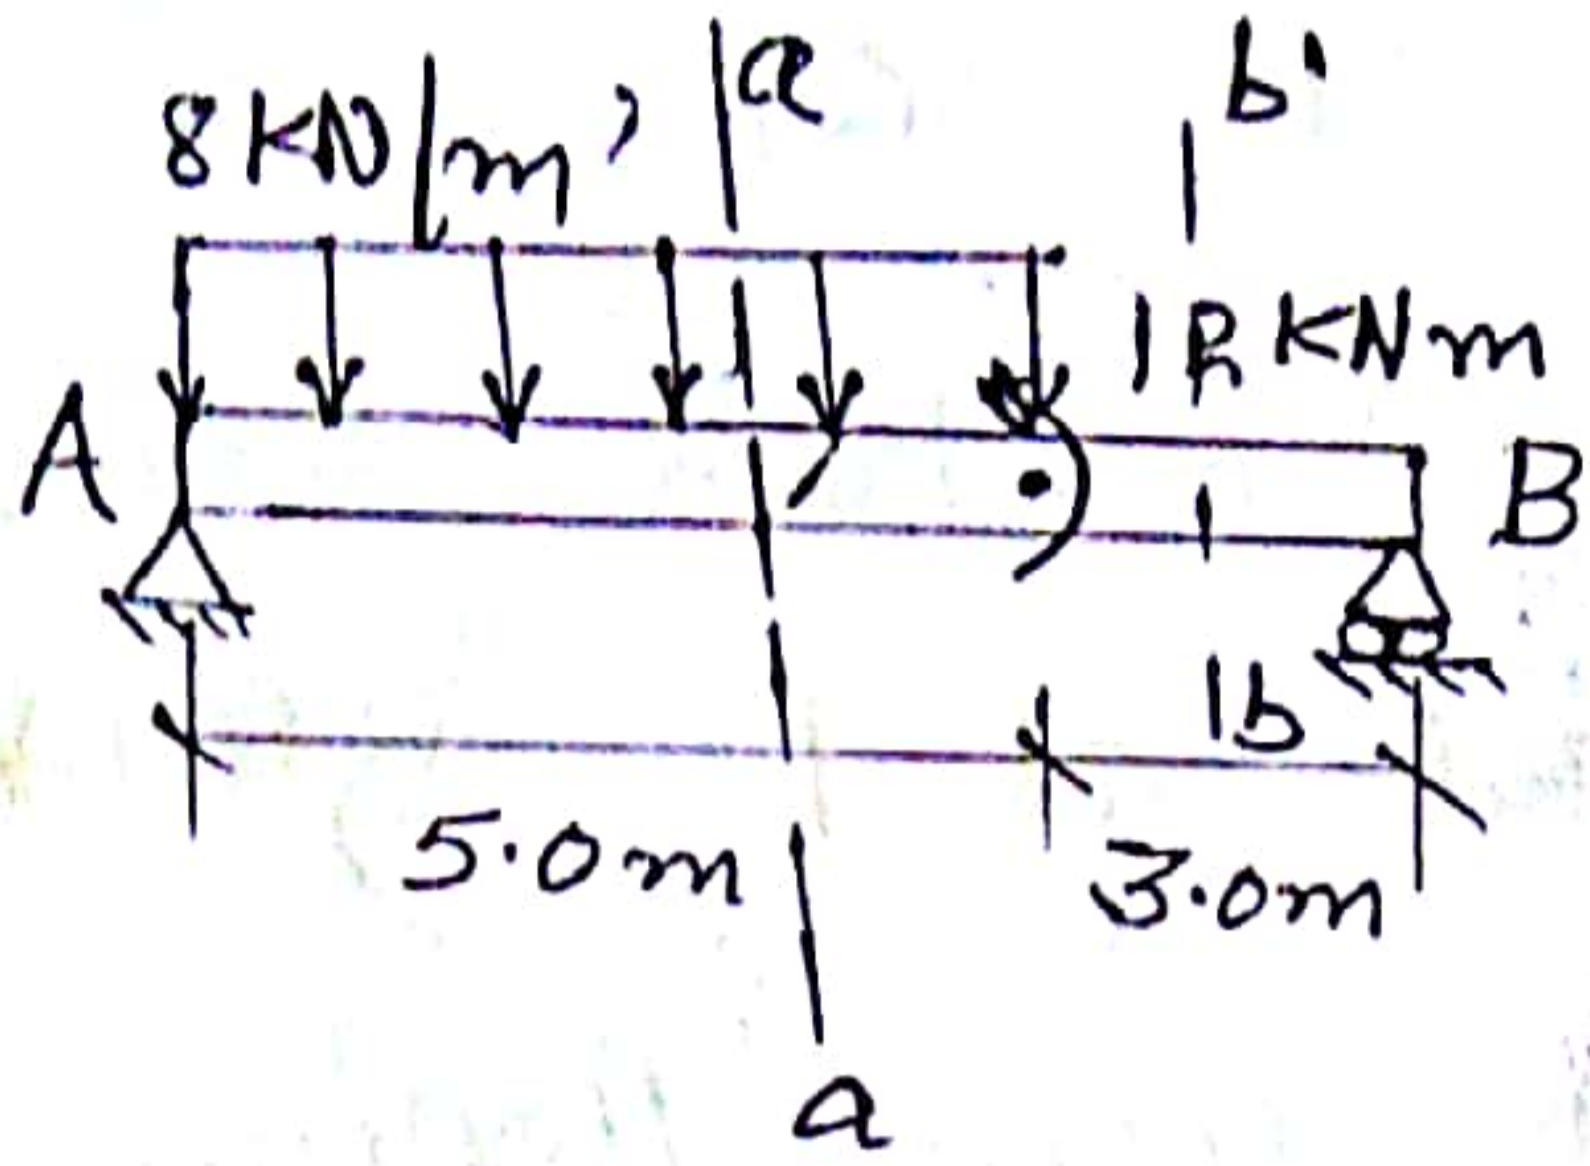 a
b'
8 KN/m'
12 KNm
A
B
b
5.0m
3.0m
a